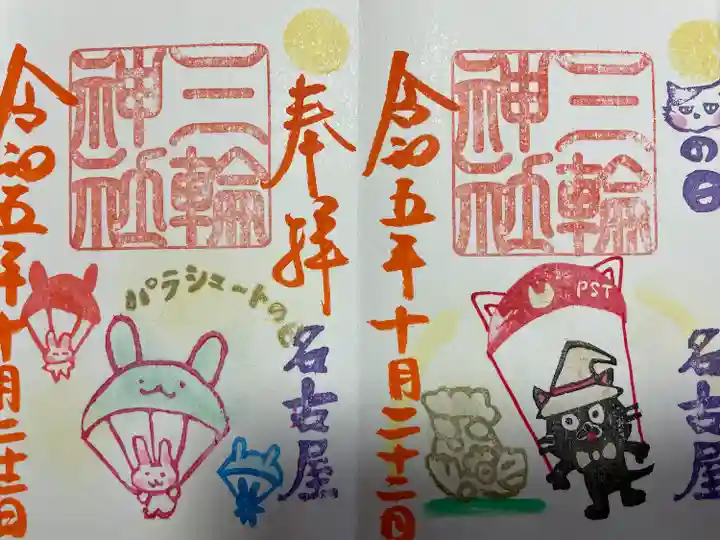 奉拝
三輪
神社
パラシュートの日
名古屋
令和五年十月二十二日
の日
三輪
神社
PST
名古屋
令和五年十月二十二日